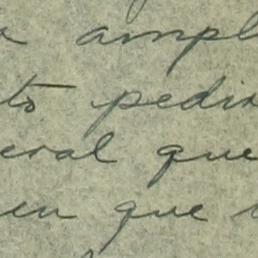 a ampl
to pedir
eral que
en que